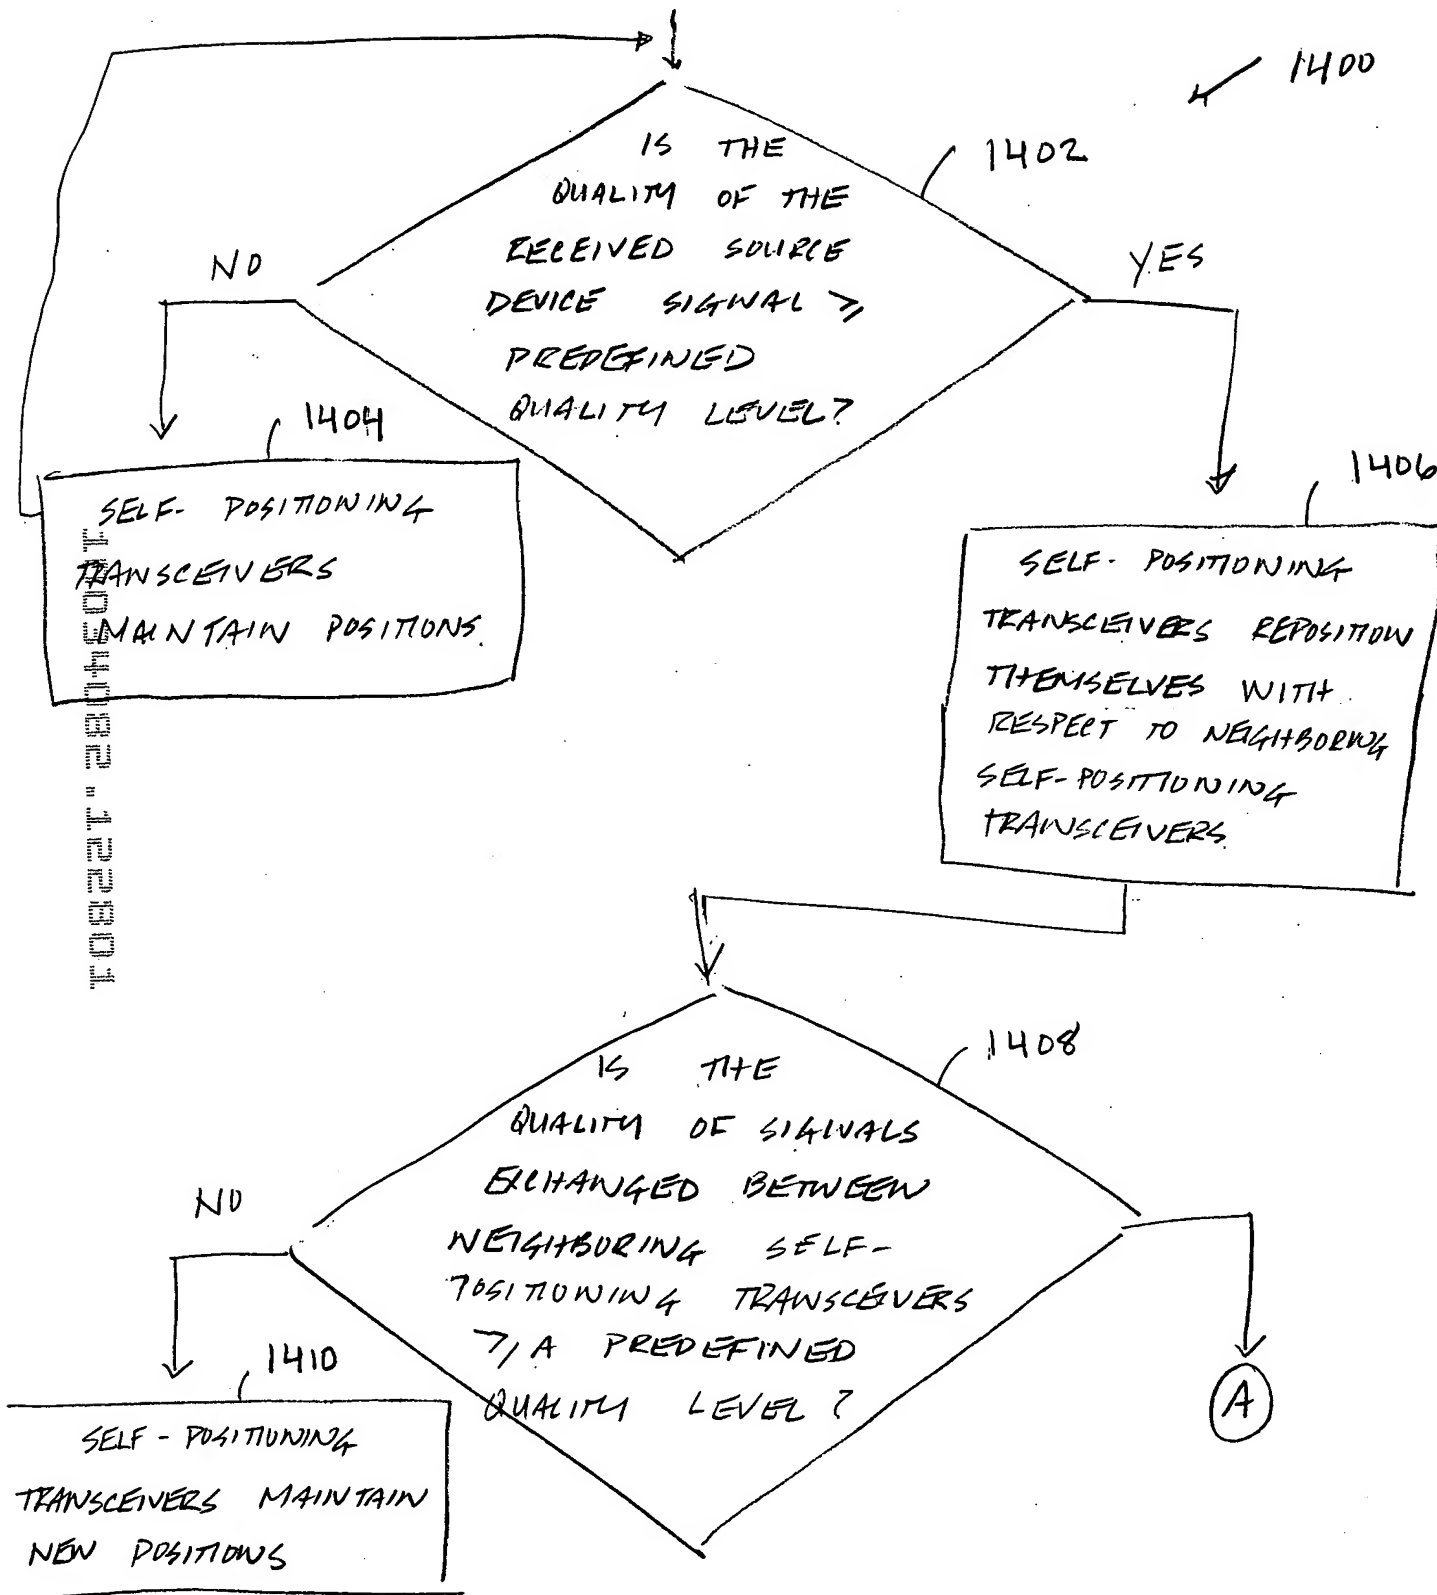 1400
IS THE
QUALITY OF THE
RECEIVED SOURCE
DEVICE SIGNAL ≥
PREDEFINED
QUALITY LEVEL?
1402
NO
YES
1404
SELF-POSITIONING
TRANSCEIVERS
MAINTAIN POSITIONS.
1406
SELF-POSITIONING
TRANSCEIVERS REPOSITION
THEMSELVES WITH
RESPECT TO NEIGHBORING
SELF-POSITIONING
TRANSCEIVERS.
10034082.122801
1408
IS THE
QUALITY OF SIGNALS
EXCHANGED BETWEEN
NEIGHBORING SELF-
POSITIONING TRANSCEIVERS
≥ A PREDEFINED
QUALITY LEVEL?
NO
A
1410
SELF-POSITIONING
TRANSCEIVERS MAINTAIN
NEW POSITIONS